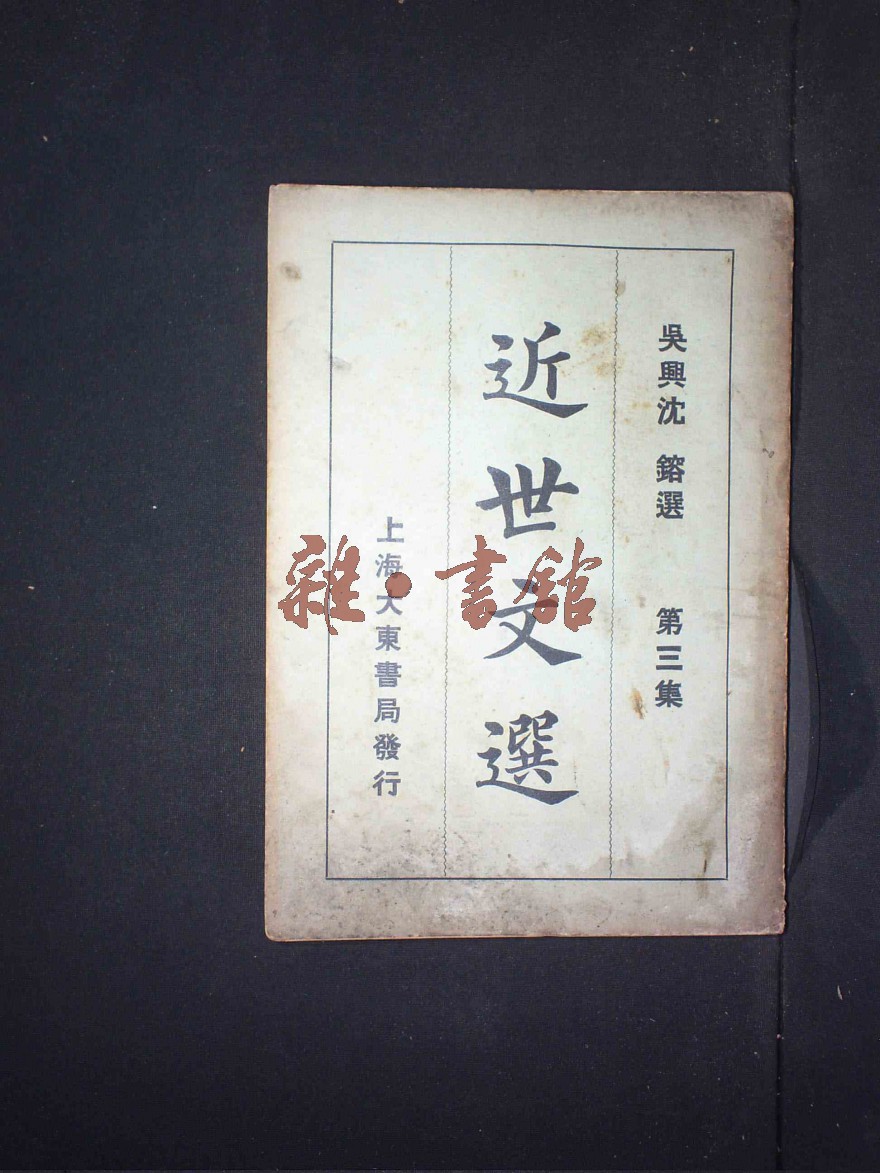 吳興沈 鎔選 第三集
近世文選
上海大東書局發行
雜·書館